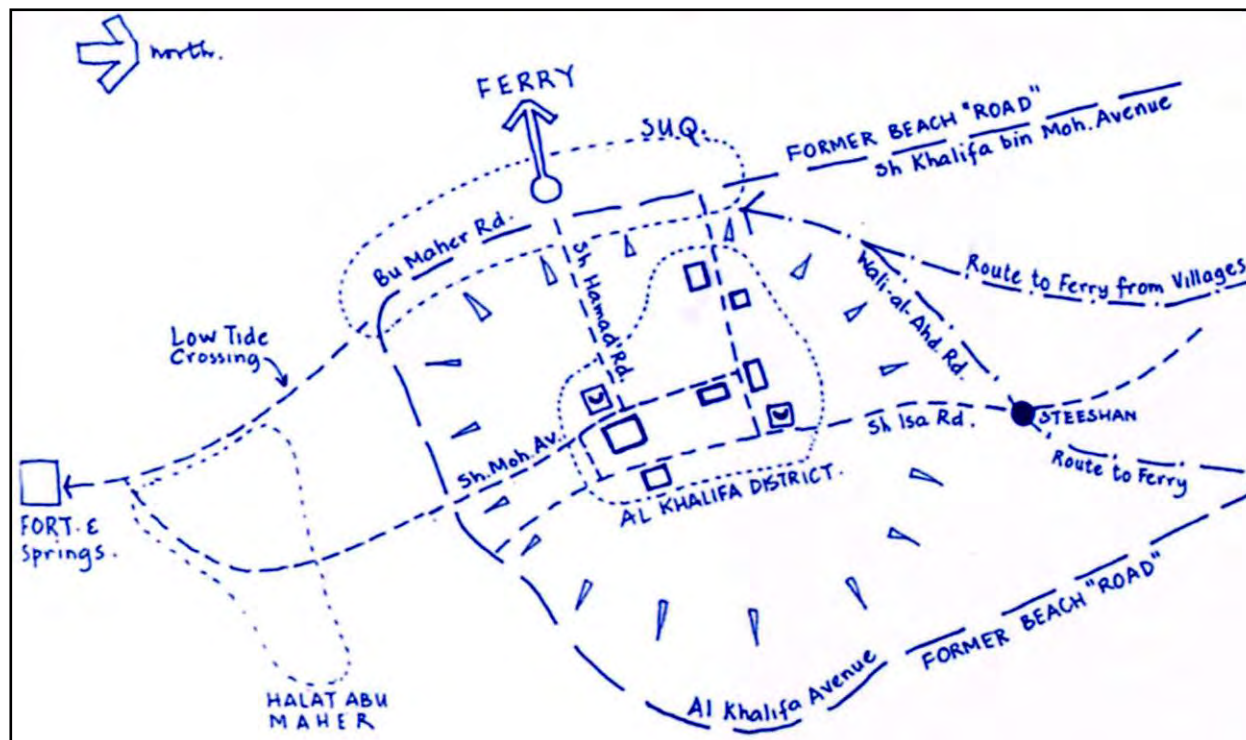 north.
FERRY
SUQ.
FORMER BEACH "ROAD"
Sh Khalifa bin Moh. Avenue
Bu Maher Rd.
Sh Hamad Rd.
Wali-al-Ahd. Rd.
Route to Ferry from Villages
Low Tide
Crossing
Sh. Moh. Av.
Sh Isa Rd.
STEESHAN
Route to Ferry
AL KHALIFA DISTRICT.
FORT. &
Springs.
HALAT ABU
MAHER
Al Khalifa Avenue
FORMER BEACH "ROAD"